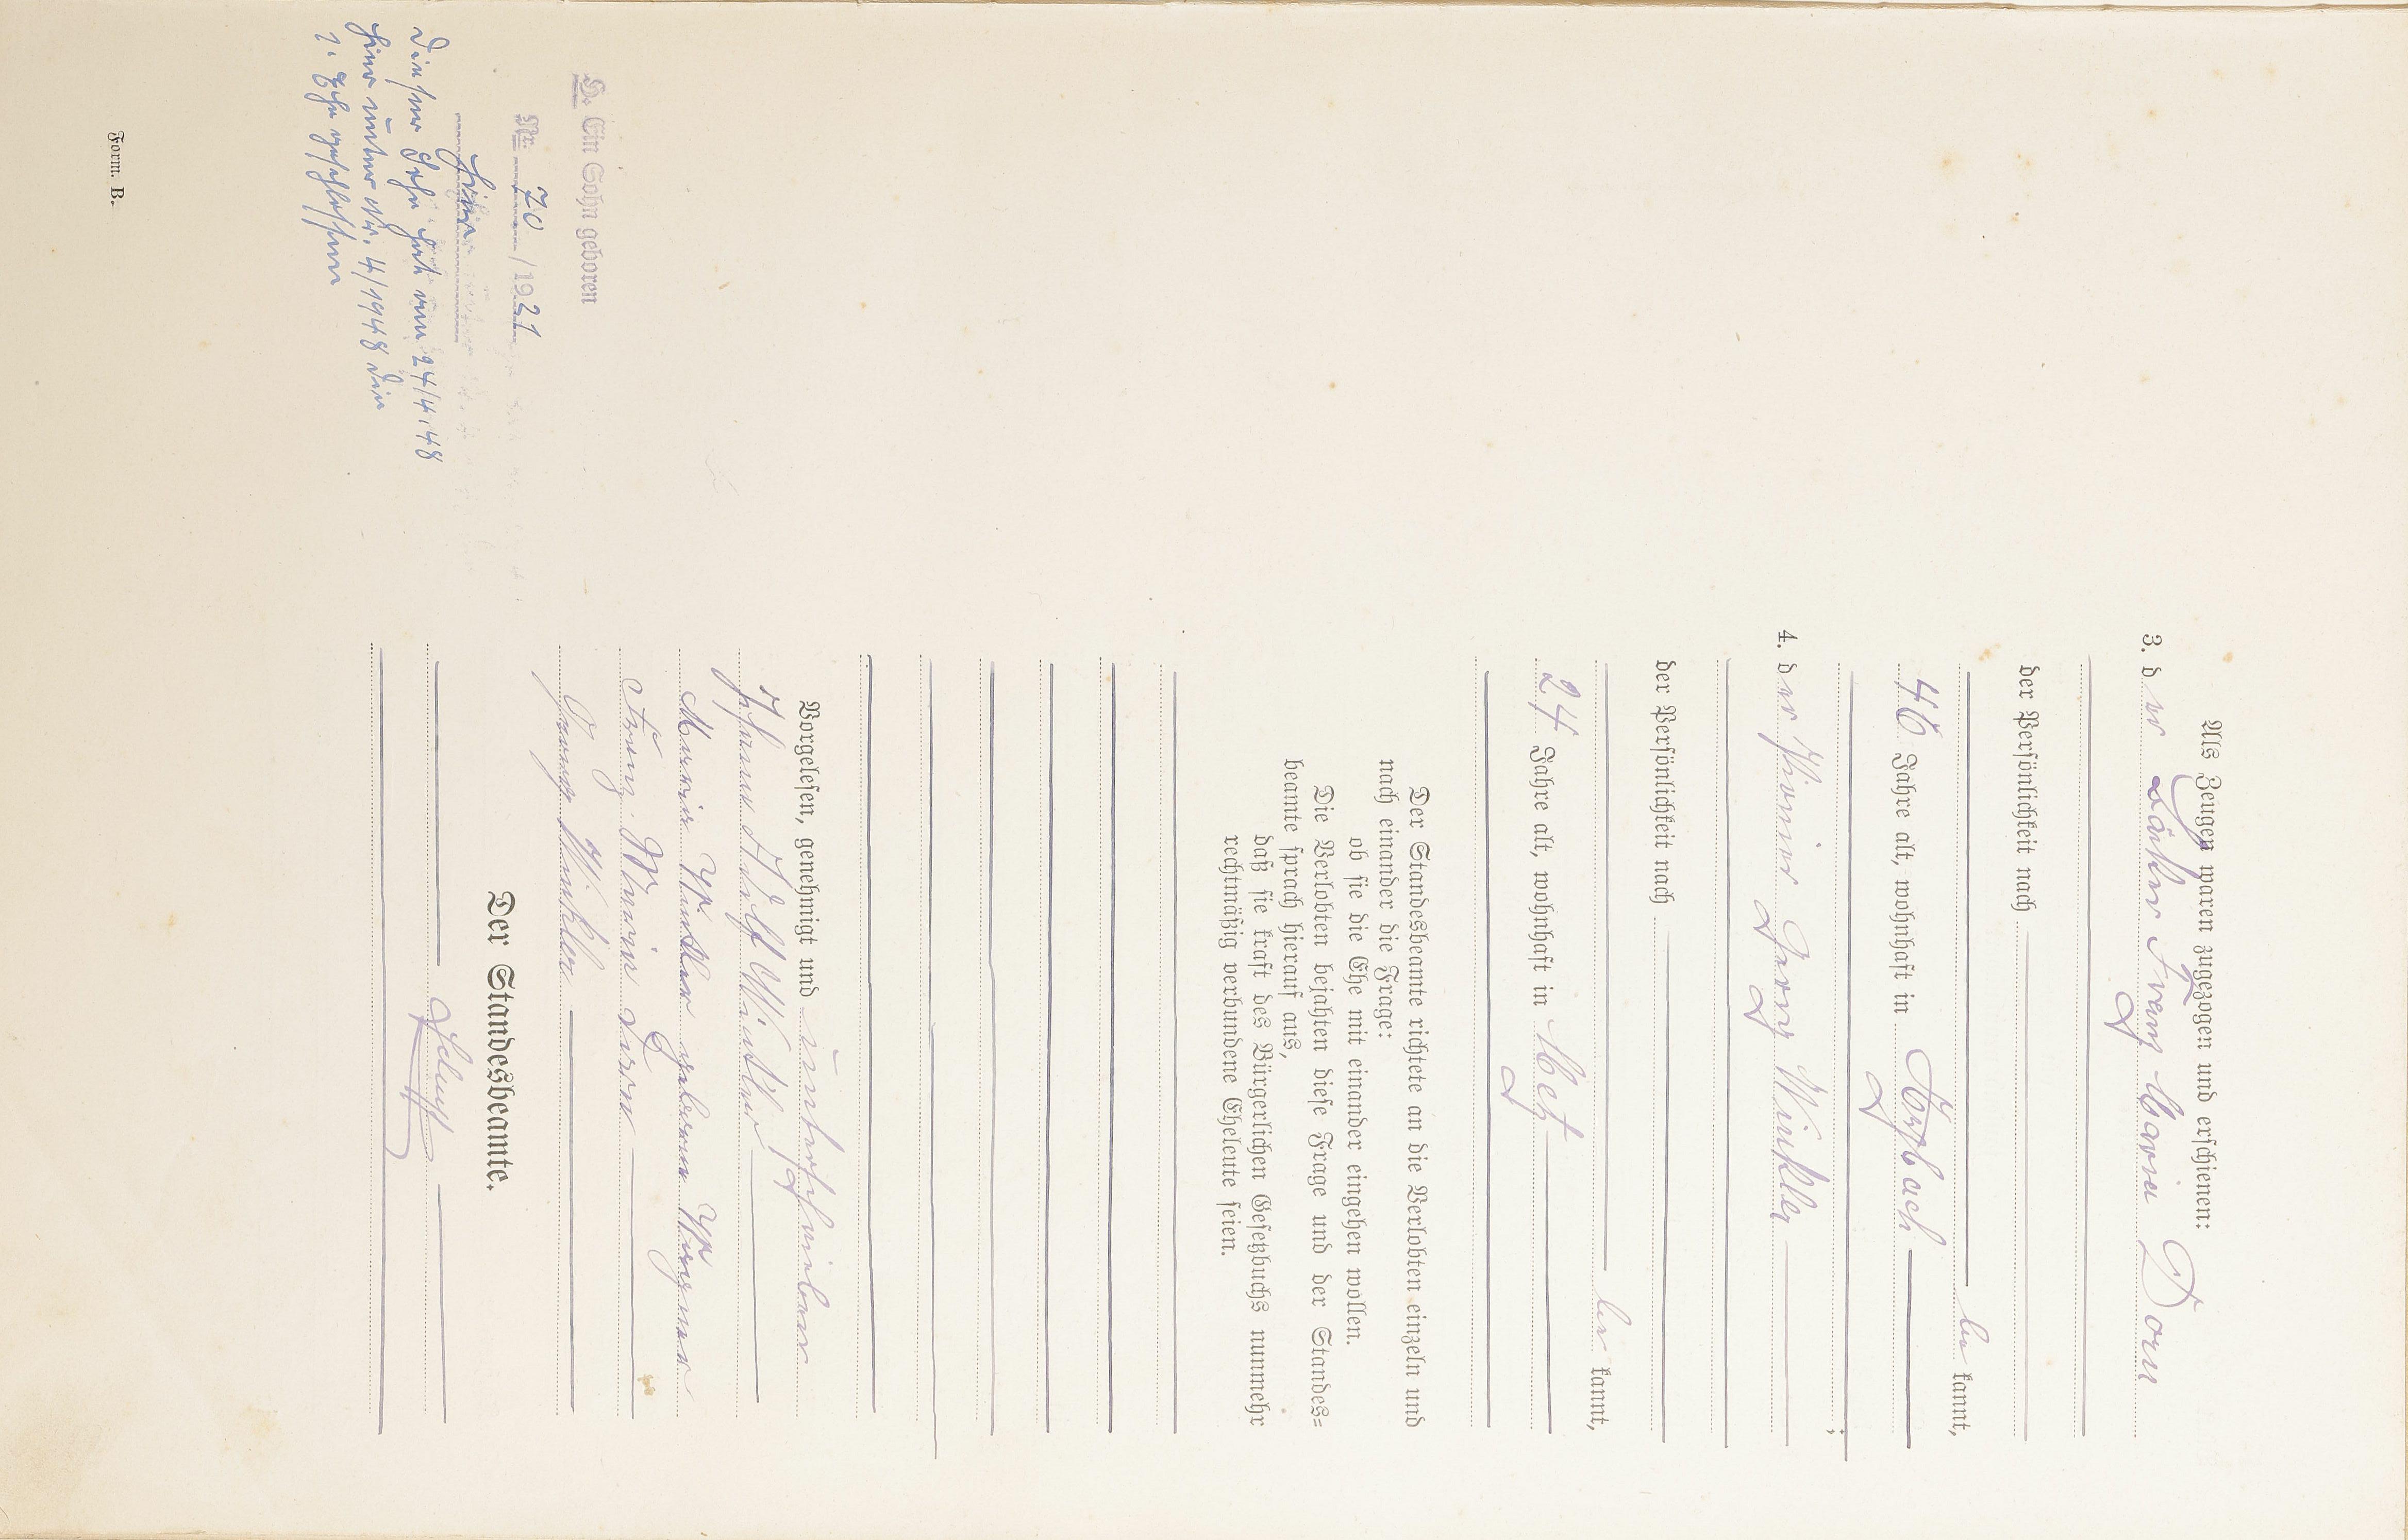 Als Zeugen waren zugezogen und erschienen:
3. der Bäcker Franz Maria Dorn
der Persönlichkeit nach
be kannt,
46 Jahre alt, wohnhaft in Forbach
;
4. der Georg Winkler
der Persönlichkeit nach
be kannt,
24 Jahre alt, wohnhaft in Metz
Der Standesbeamte richtete an die Verlobten einzeln und
nach einander die Frage:
ob sie die Ehe mit einander eingehen wollen.
Die Verlobten bejahten diese Frage und der Standes=
beamte sprach hierauf aus,
daß sie kraft des Bürgerlichen Gesetzbuchs nunmehr
rechtmäßig verbundene Eheleute seien.
Vorgelesen, genehmigt und unterschrieben
Adolf Winkler
Maria Winkler geborene
Franz Maria Dorn
Georg Winkler
Der Standesbeamte.
H. Ein Sohn geboren
Nr. 70 / 1921
hier
Dieser Sohn hat am 24/4.48
hier unter Nr. 4/1948 die
1. Ehe geschlossen
Form. B.